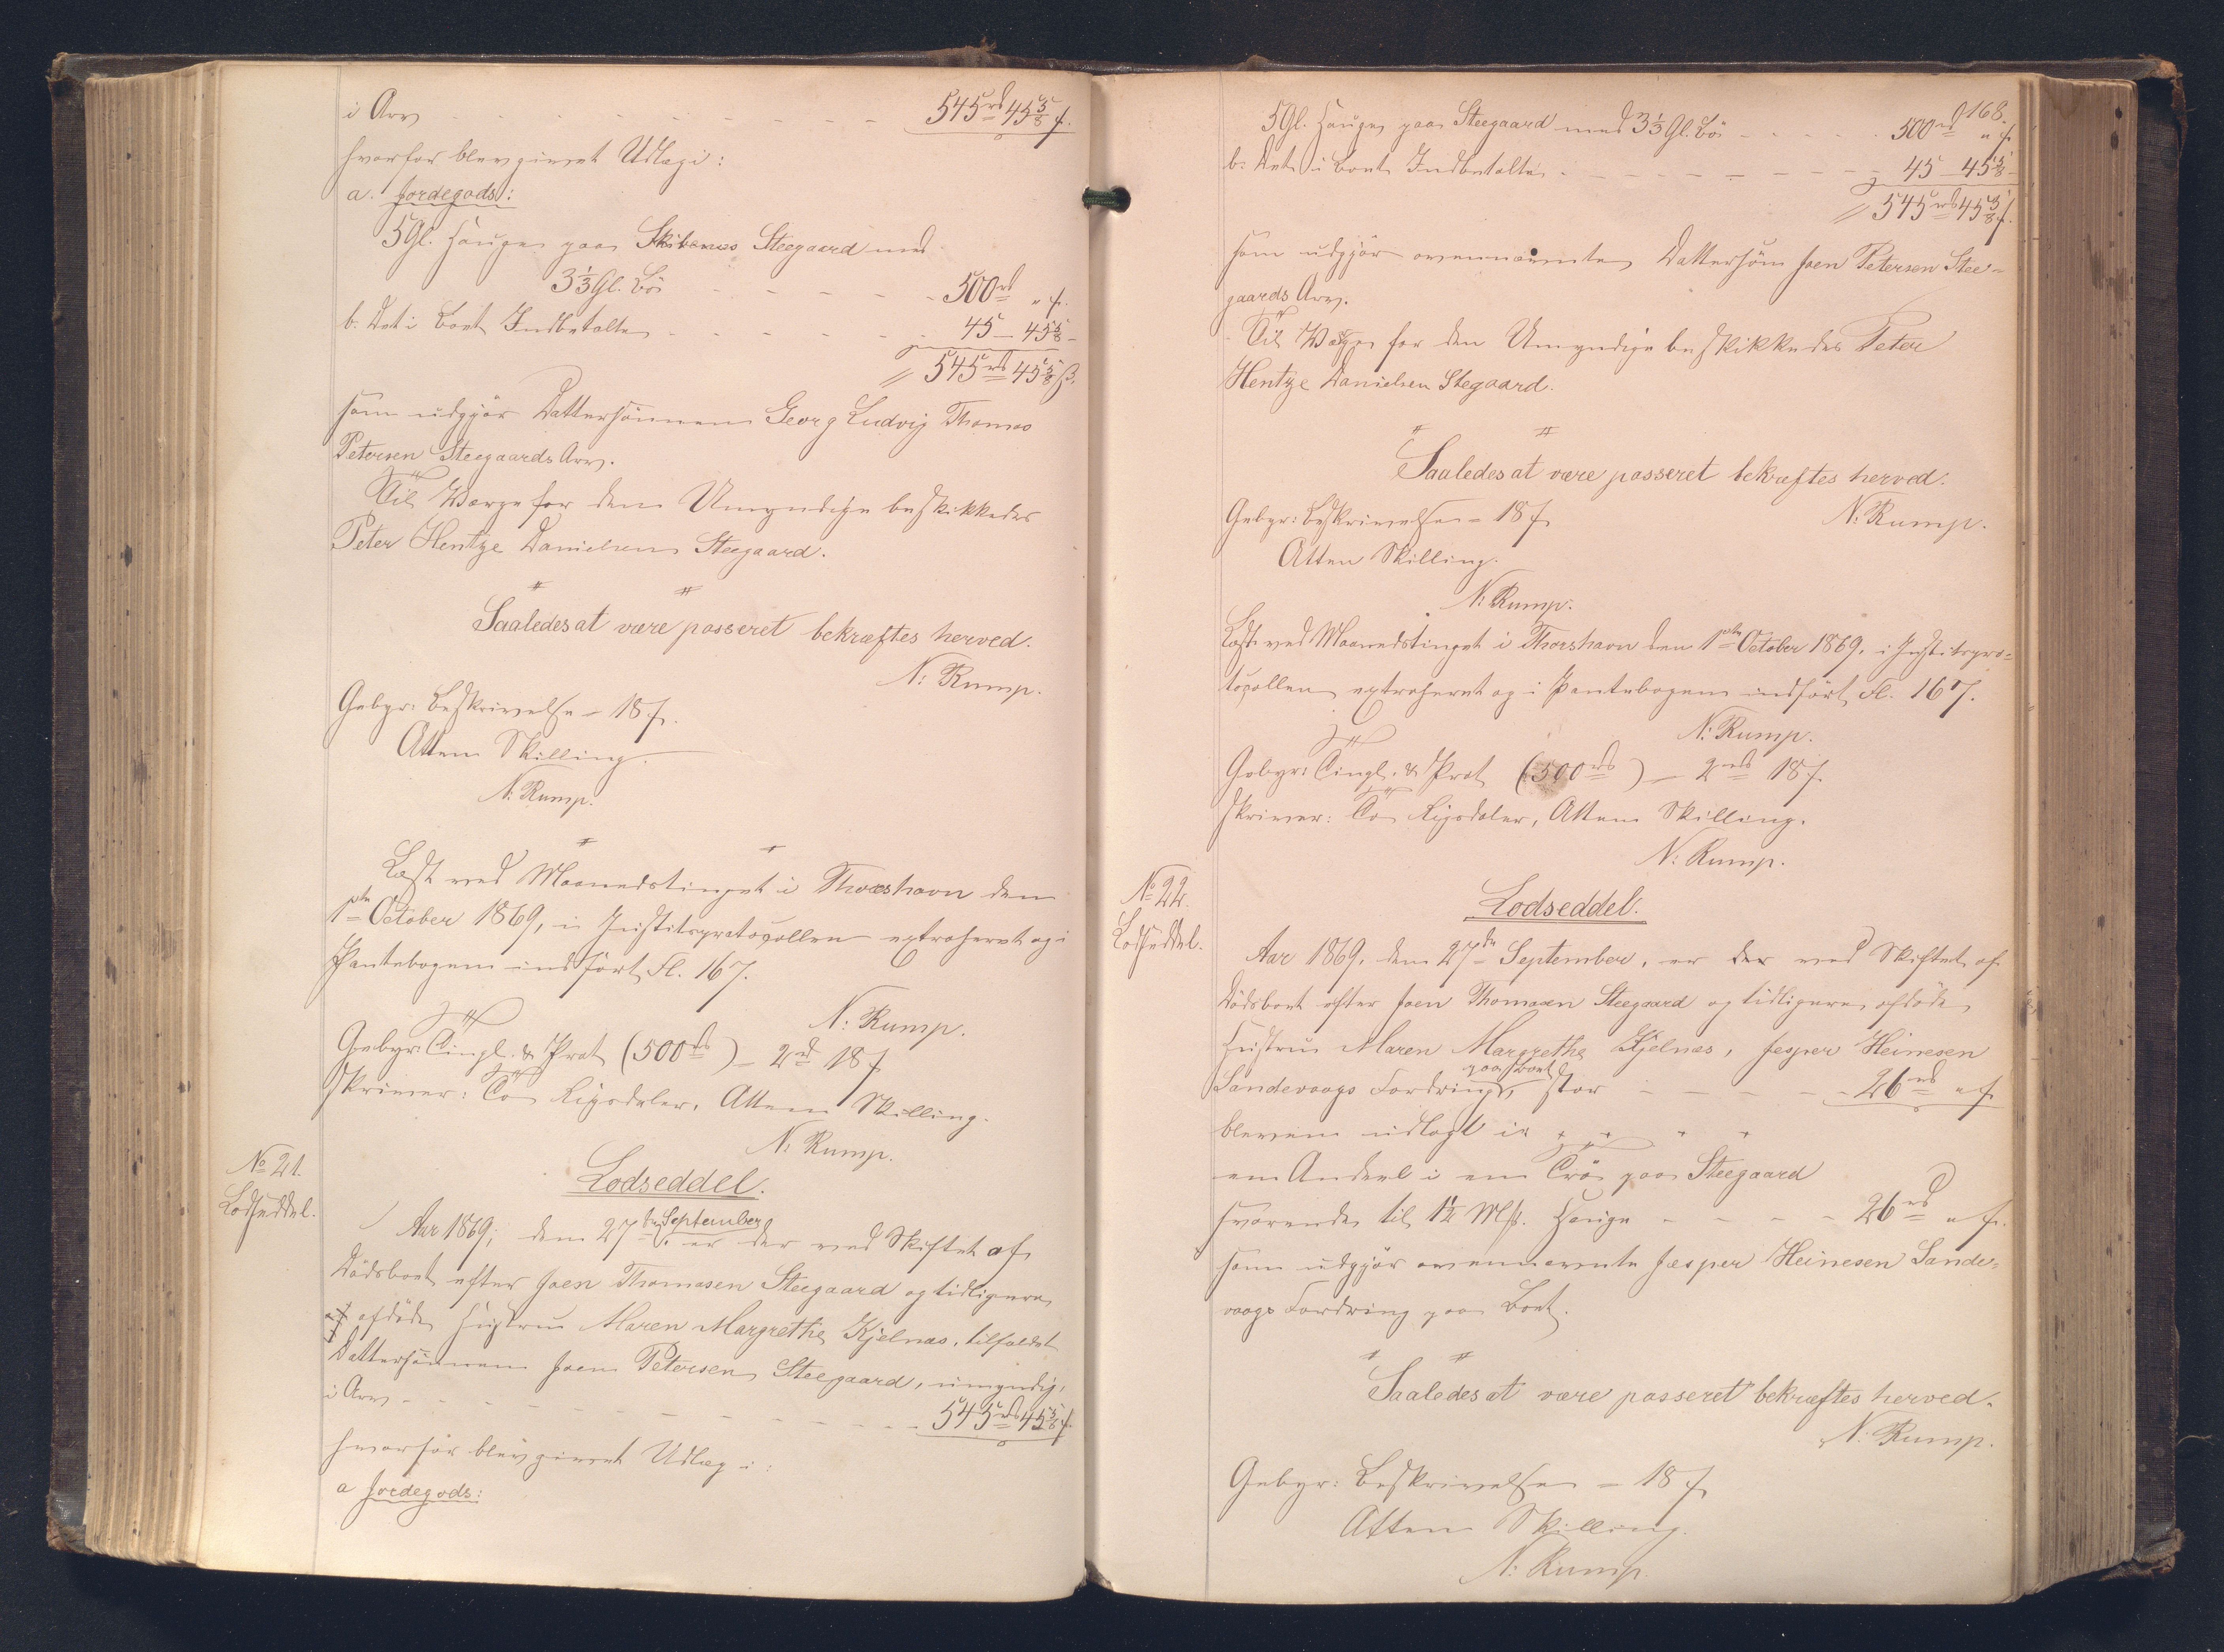 i Arv - - - - - - - - 545rd 45 5/8 ß.
hvorfor blev givet Udlæg i:
a. Jordegods:
5 Gl. Hauge paa Steegaard med
3 1/3 Gl. Bö - - - - - 500rd " ß.
b. Det i Boet Indbetalte - - - - - - 45 - 45 5/8 -
= 545rd 45 5/8 ß.
som udgjör Dattersönnen Georg Ludvig Thomas
Petersen Steegaards Arv.
Til Værge for den Umyndige beskikkedes
Peter Hentze Danielsen Steegaard.
Saaledes at være passeret bekræftes herved.
N: Rump.
Gebyr: Beskrivelse = 18 ß.
Atten Skilling.
N: Rump.
Læst ved Maanedstinget i Thorshavn den
1ste October 1869, i Justitsprotocollen extraheret og i
Pantebogen indfört Fl. 167.
N: Rump.
Gebyr: Tingl. & Prot (500rd) = 2rd 18 ß
skriver: To Rigsdaler, Atten Skilling.
N: Rump.
No 21.
Lodseddel.
Lodseddel.
Aar 1869, den 27de September er der ved Skiftet af
Dödsboet efter Joen Thomasen Steegaard og tidligere
afdöde Hustru Maren Margrethe Kjelnæs, tilfaldet
Dattersönnen Joen Petersen Steegaard, umyndig,
i Arv - - - - - - - - 545rd 45 5/8 ß.
hvorfor blev givet Udlæg i:
a Jordegods:
168.
5 Gl. Hauge paa Steegaard med 3 1/3 Gl. Bö - - - - 500rd " ß.
b: Det i Boet Indbetalte - - - - - - - 45 - 45 5/8 -
= 545rd 45 5/8 ß.
som udgjör ovennævnte Dattersön Joen Petersen Stee-
gaards Arv.
Til Værge for den Umyndige beskikkedes Peter
Hentze Danielsen Stegaard.
Saaledes at være passeret bekræftes herved.
Gebyr: Beskrivelse = 18 ß N: Rump.
Atten Skilling.
N: Rump.
Læst ved Maanedstinget i Thorshavn den 1ste October 1869, i Justitspro-
tocollen extraheret og i Pantebogen indfört Fl. 167.
N: Rump.
Gebyr: Tingl. & Prot (500rd) = 2rd 18 ß
skriver: To Rigsdaler, Atten Skilling.
N: Rump.
No 22.
Lodseddel.
Lodseddel.
Aar 1869, den 27de September, er der ved Skiftet af
Dödsboet efter Joen Thomasen Steegaard og tidligere afdöde
Hustru Maren Margrethe Kjelnæs, Jesper Heinesen
Sandevaags Fordring paa Boet, stor - - - - - 26rd " ß
bleven udlagt i:
en Andeel i en Trö paa Steegaard
svarende til 1 1/2 Mk. Hauge - - - - 26rd " ß.
som udgjör ovennævnte Jesper Heinesen Sande-
vaags Fordring paa Boet.
Saaledes at være passeret bekræftes herved.
N: Rump.
Gebyr: Beskrivelse = 18 ß
Atten Skilling.
N: Rump.